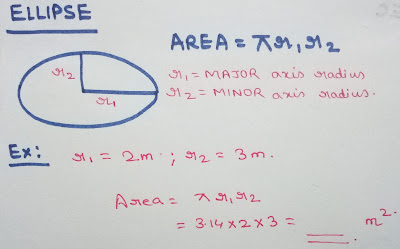 ELLIPSE
AREA = πr₁r₂
r₂
r₁
r₁ = MAJOR axis radius
r₂ = MINOR axis radius.
Ex:
r₁ = 2m ; r₂ = 3m.
Area = πr₁r₂
= 3.14 × 2 × 3 = ___ m².